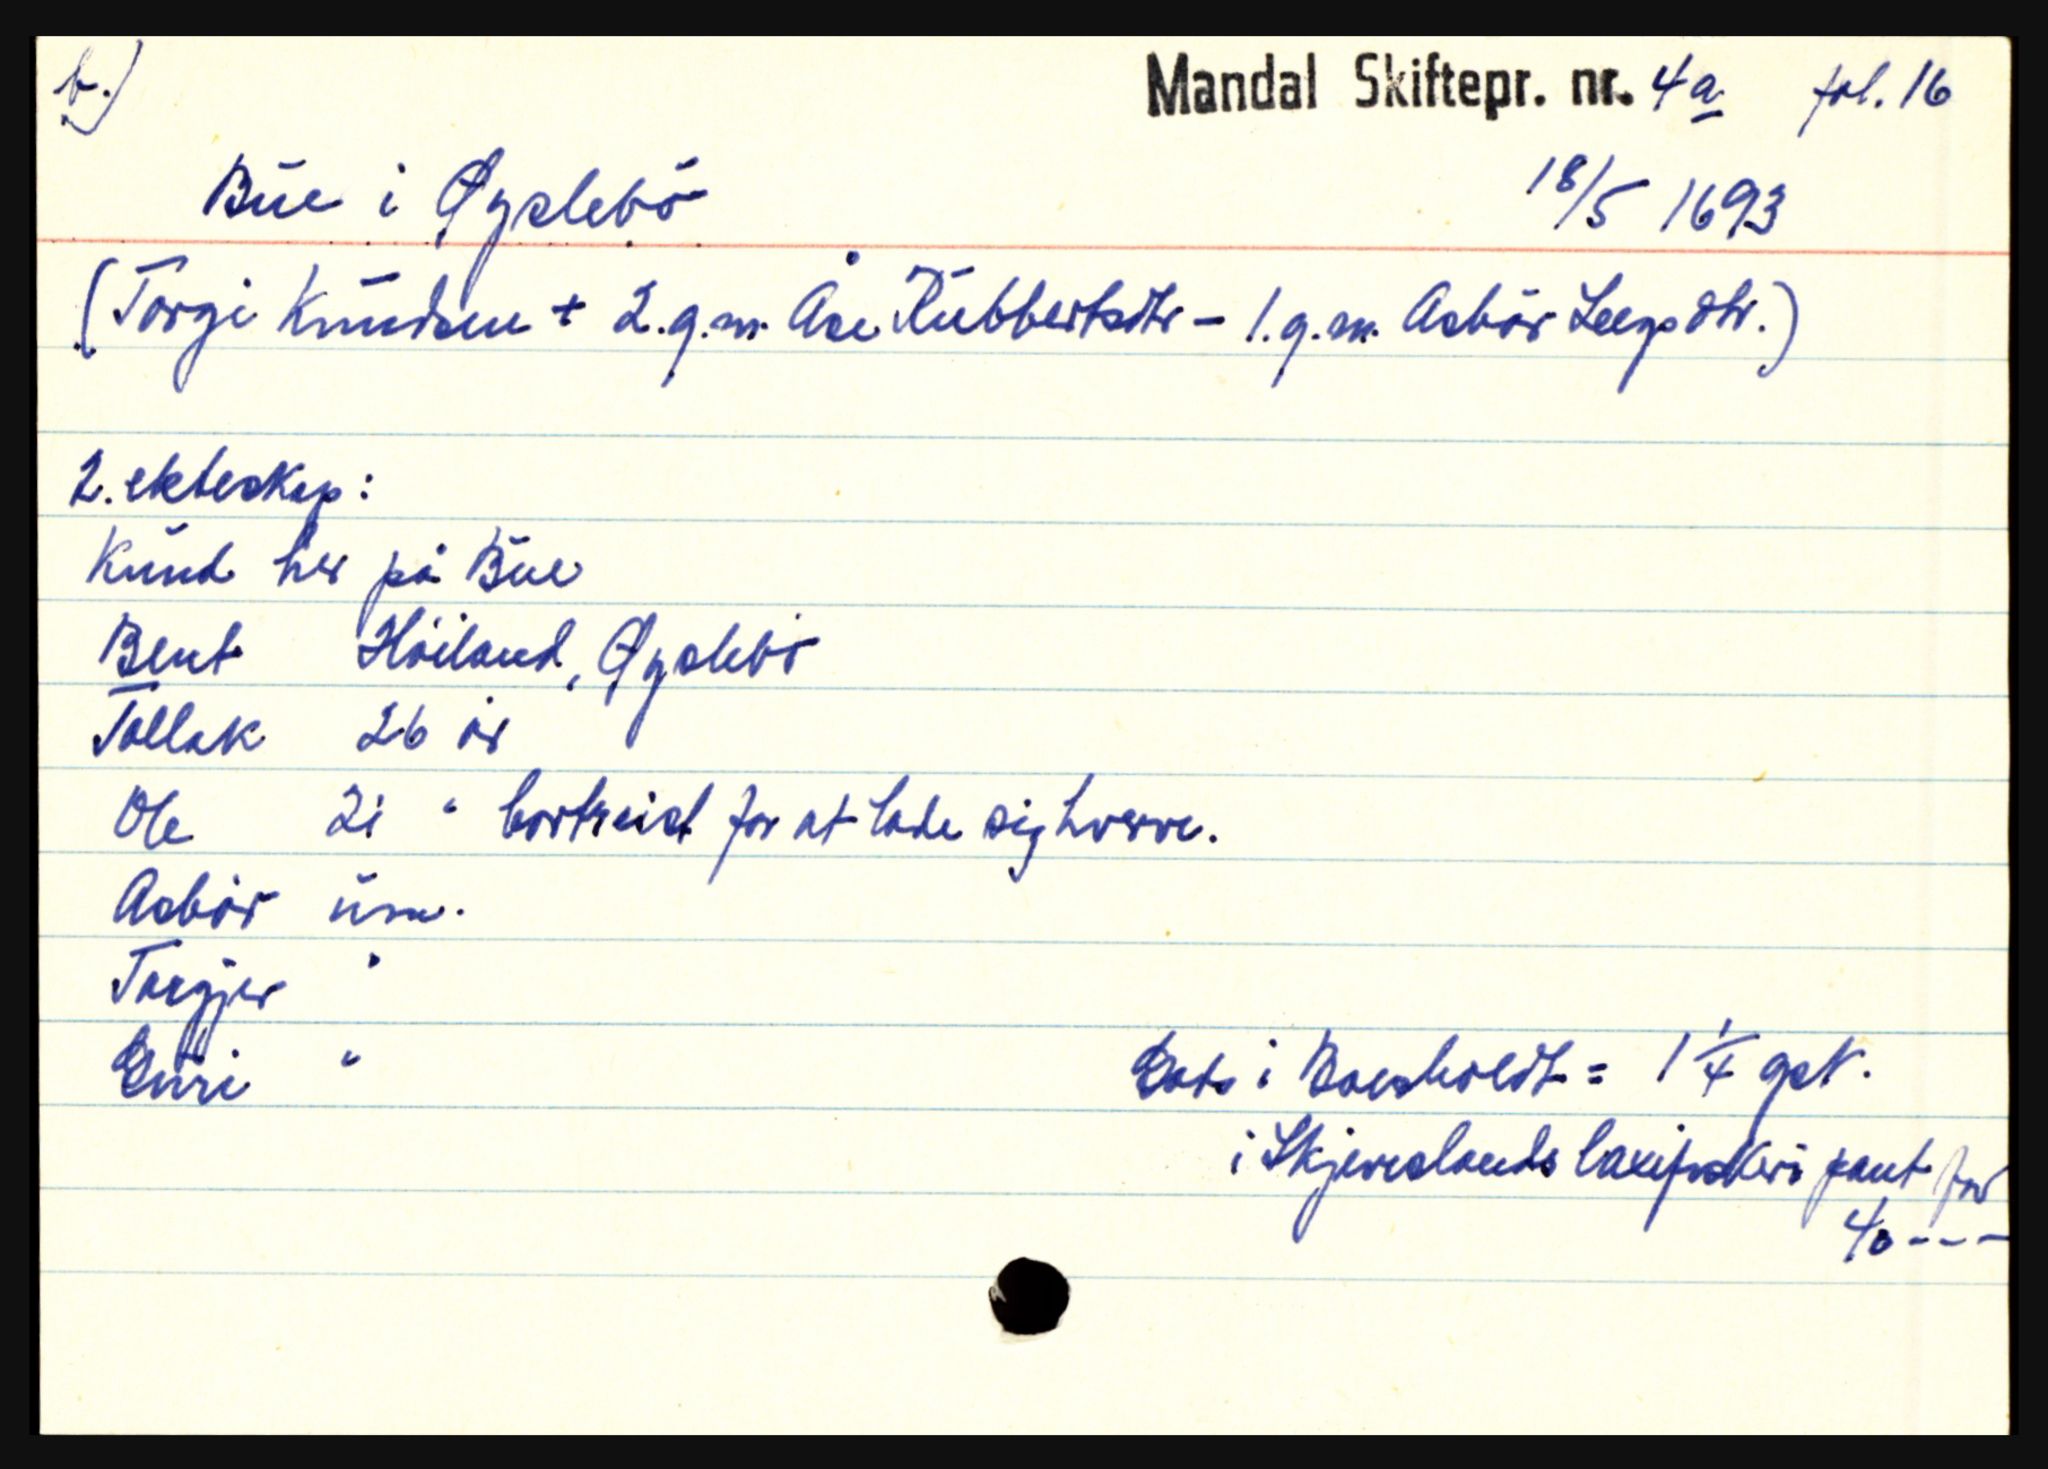 b.)
Mandal Skiftepr. nr. 4a fol. 16
Büe i Øyslebö
18/5 1693
(Torgi Knüdsen + 2.g.m. Åse Rübbertsdtr - 1.g.m. Asbör Leegsdtr.)
2. ekteskap:
Knüd her på Büe
Bent Höiland, Øyslebö
Tollak 26 år
Ole 21 " bortreist for at lade sig hverve.
Asbör üm.
Targjer "
Güri "
Gods i Boesholdt = 1 1/4 gsk.
i Skjernslands laxefiskeri pant for
40---